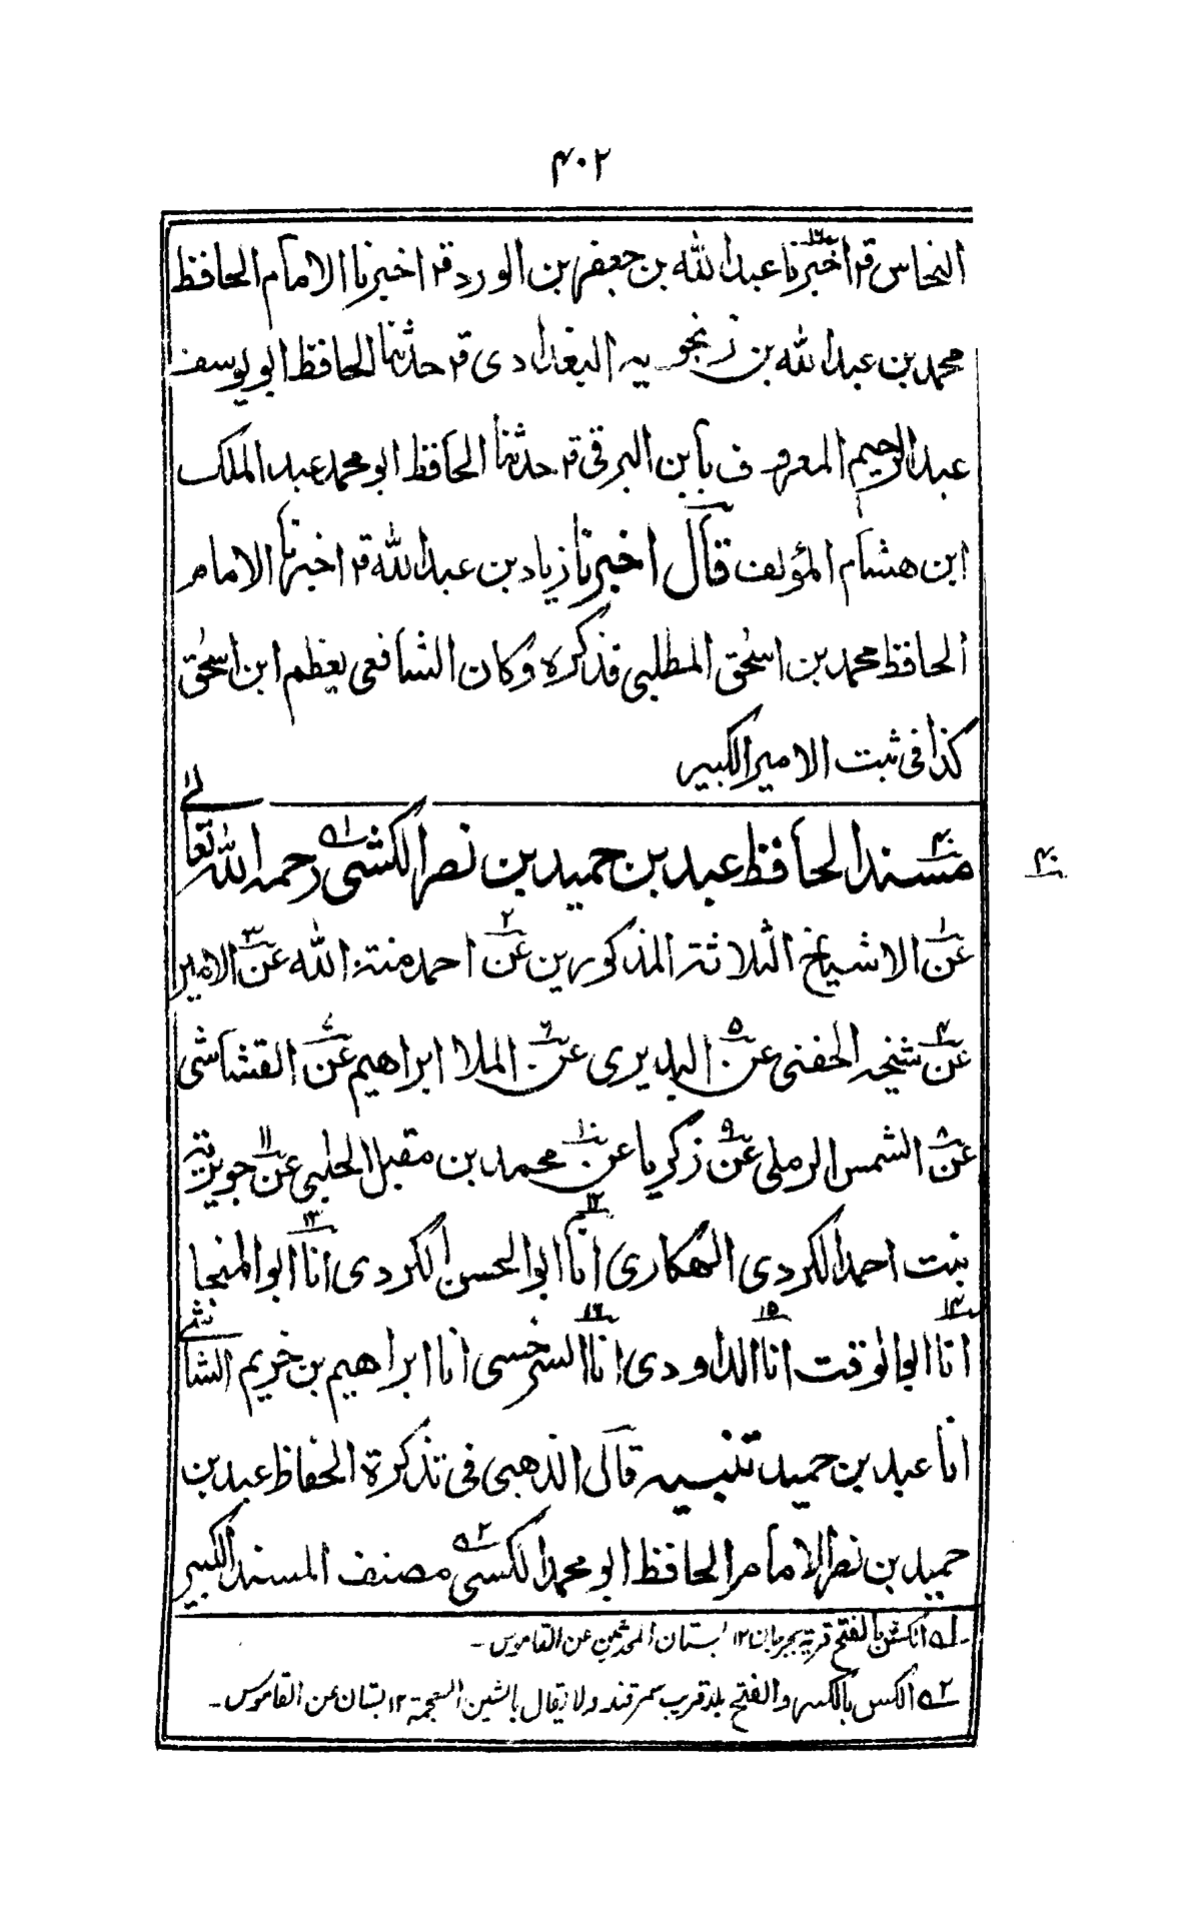 ۴۰۲
النحاس قال اخبرنا عبد الله بن جعفر بن الورد قال اخبرنا الامام الحافظ
محمد بن عبد الله بن زنجويه البغدادى قال حدثنا الحافظ ابو يوسف
عبد الرحيم المعروف بابن البرقى قال حدثنا الحافظ ابو محمد عبد الملك
ابن هشام المؤلف قال اخبرنا زياد بن عبد الله قال اخبرنا الامام
الحافظ محمد بن اسحٰق المطلبى فذكره وكان الشافعى يعظم ابن اسحٰق
كذا فى ثبت الامير الكبير
۴۰ مسند الحافظ عبد بن حميد بن نصر الكشى رحمه الله تعالى
عن الاشياخ الثلاثة المذكورين عن احمد منة الله عن الامير
عن شيخه الحفنى عن البديرى عن الملا ابراهيم عن القشاشى
عن الشمس الرملى عن زكريا عن محمد بن مقبل الحلبى عن جويرية
بنت احمد الكردى الهكارى انا ابو الحسن الكردى انا ابو المنجا
انا ابو الوقت انا الداودى انا السرخسى انا ابراهيم بن خريم الشاشى
انا عبد بن حميد تنبيه قال الذهبى فى تذكرة الحفاظ عبد بن
حميد بن نصر الامام الحافظ ابو محمد الكسى مصنف المسند الكبير
۱ه الكش بالفتح قرية بجرجان ۱۲ بستان المحدثين عن القاموس۔
۲ه الكس بالكسر والفتح بلد قريب سمرقند ولا يقال بالشين المعجمة ۱۲ بستان عن القاموس۔